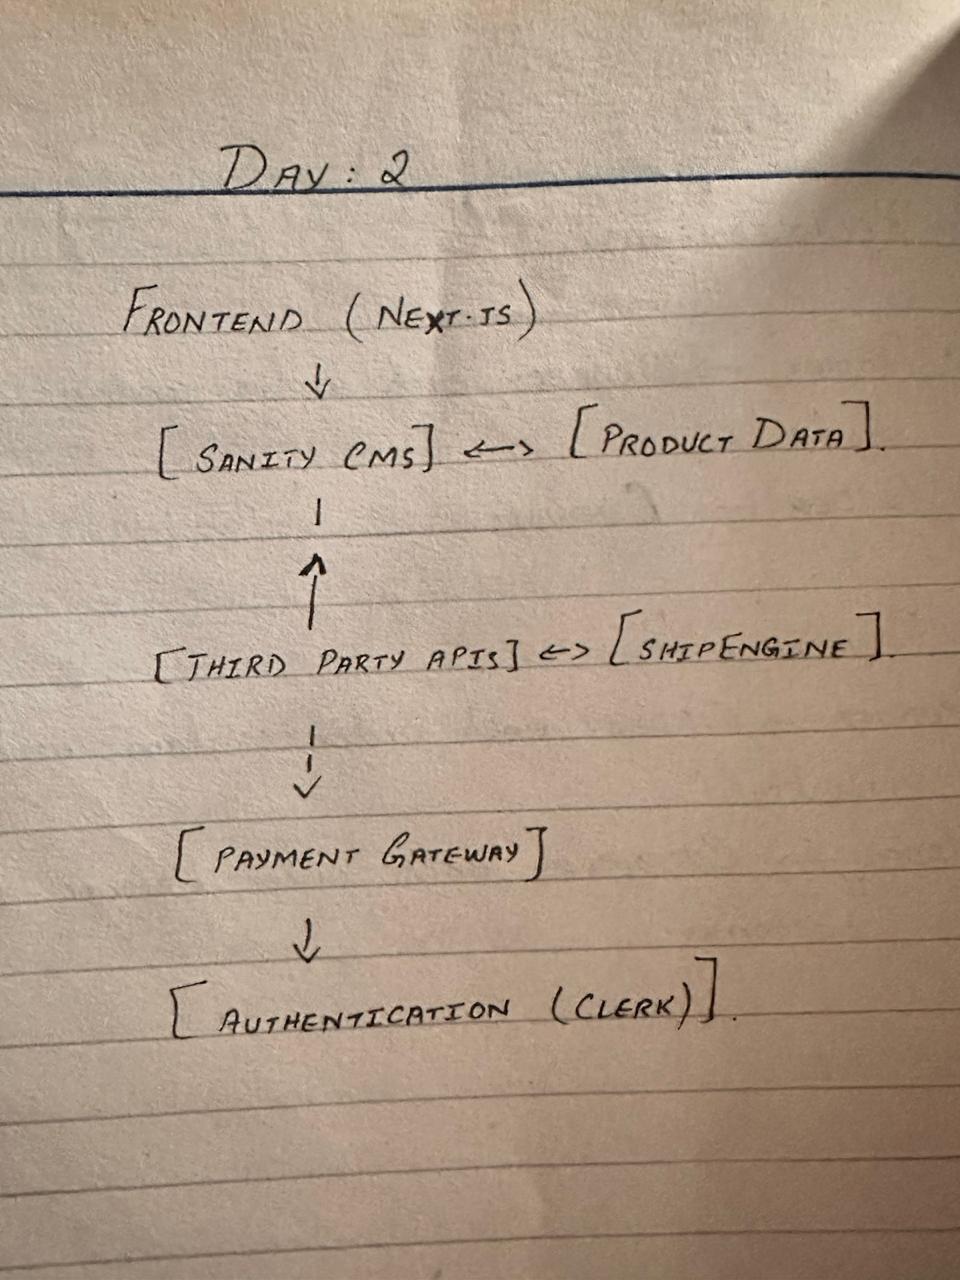 DAY : 2
FRONTEND (NEXT.JS)
↓
[ SANITY CMS] <-> [PRODUCT DATA].
|
↑
[THIRD PARTY APIS] <-> [SHIPENGINE].
↓
[PAYMENT GATEWAY]
↓
[AUTHENTICATION (CLERK)].